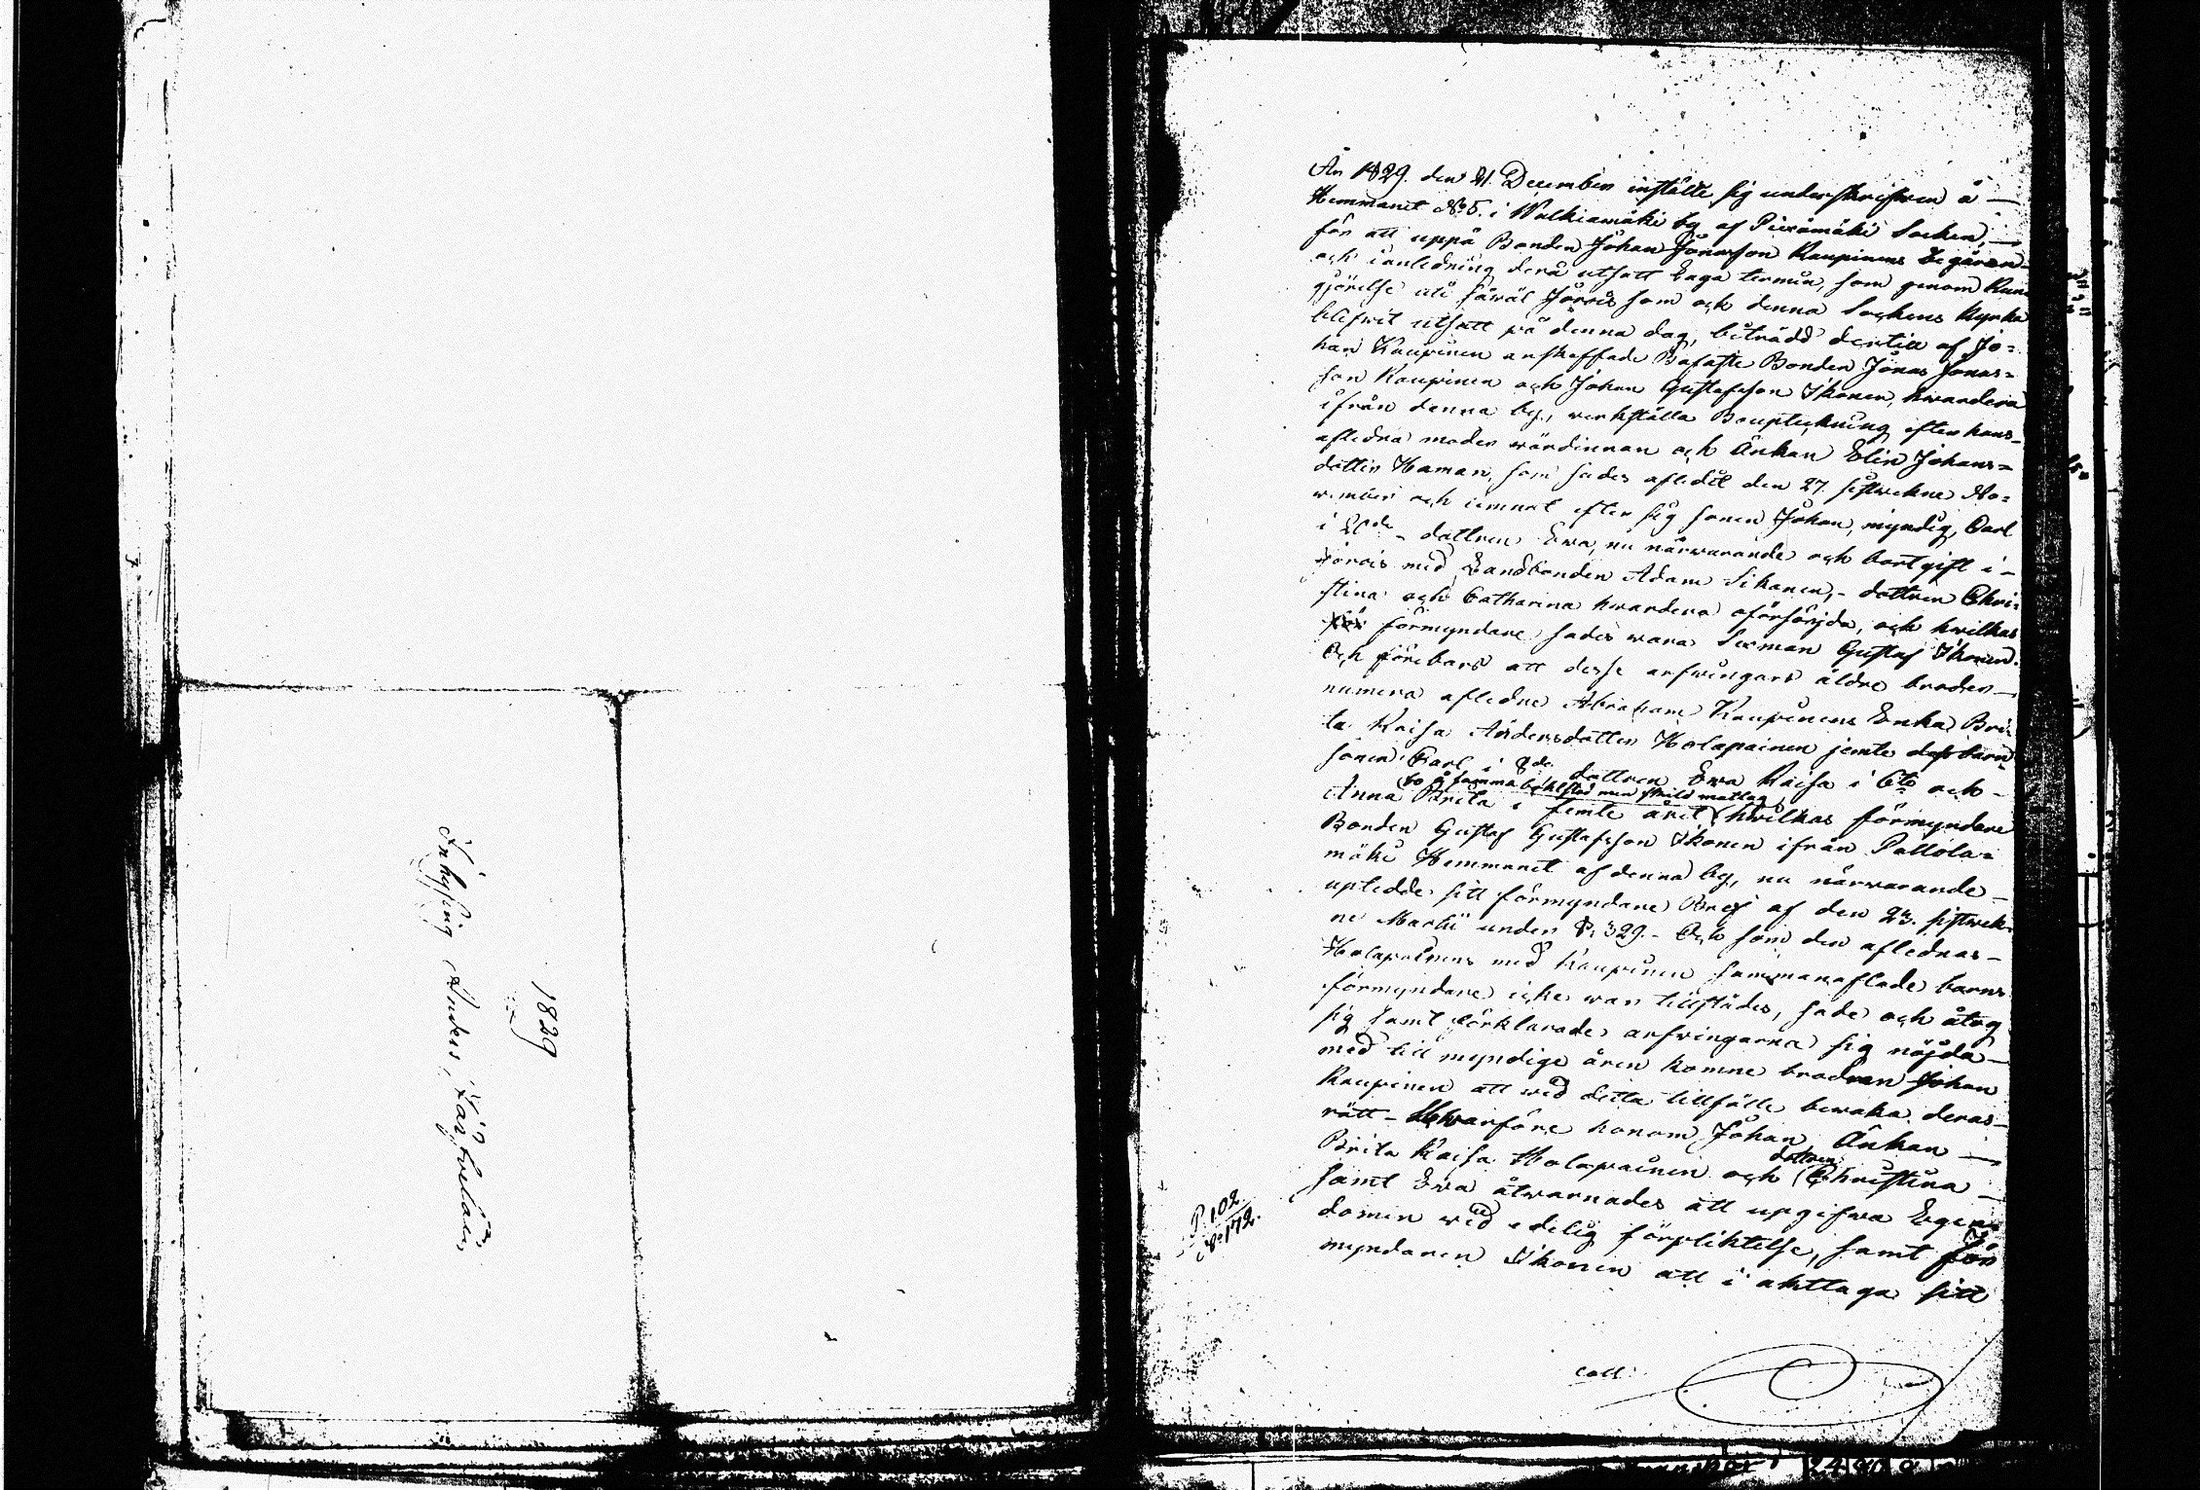 Inhysing Anders Kärkkäin,
1829
År 1829. den 21. December instälte sig underskrifven å
Hemmanet No 5. i Walkiamäki by af Piexämäki Socken,
för att uppå Bonden Johan Jonasson Kaupinens begäran
och i anledning derå utsatt Laga termin, som genom kun-
gjörelse uti såväl Jorois som och denna Sockens kyrka
blifvit utsatt på denna dag, biträdd dertill af Jo-
han Kaupinen anskaffade Bofaste Bonden Jonas Jonas-
son Kaupinen och Johan Gustafsson Ikonen, hvardera
ifrån denna by, verkställa Bouptekning efter hans
afledna moder värdinnan och Änkan Elin Johans-
dotter Haman, som sades afledit den 27. sistvekne No-
vember och lemnat efter sig sonen Johan, myndig, Carl
i 20de - dottren Ewa, nu närvarande och bortgift i
Jorois med Landbonden Adam Sikanen, - dottren Chri-
stina och Catharina hvardera oförsörjda, och hvilkas
förmyndare sades vara Sexman Gustaf Ikonen.
Och förebars att desse arfvingars äldre broder
numera afledne Abraham Kaupinens Enka Bri-
ta Kaisa Andersdotter Holapainen jemte dess barn
sonen Carl i 8de dottren Ewa Kaisa i 6te och
bo å samma bohlstad men skild matlag,
Anna Brita i femte året hvilkas förmyndare
Bonden Gustaf Gustafsson Ikonen ifrån Pallola-
mäki Hemmanet af denna by, nu närvarande
uptedde sitt förmyndare Bref af den 23. sistvek-
ne Martii under § 329. - Och som den aflednas
Holapainens med Kaupinen sammanaflade barns
förmyndare icke var tillstädes, sade och åtog
sig samt förklarade arfvingarna sig nöjda
med till myndige åren komne brodren Johan
Kaupinen att vid detta tillfälle bevaka deras
rätt - Hvarföre honom Johan, Änkan
Brita Kaisa Holapainen och dottren Christina
samt Ewa åtvarnades att upgifva Egen-
domen vid edelig förpliktelse, samt för
myndaren Ikonen att i akttaga sitt
P. 102.
No 172.
coll: